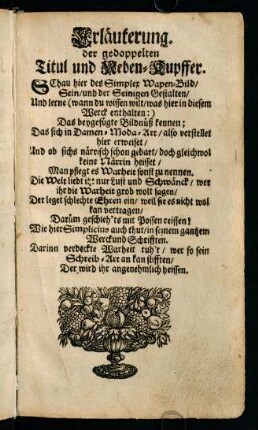 Erläuterung.
der gedoppelten
Titul und Neben-Kupffer.
SChau hier des Simplex Wapen-Bild/
Sein/ und der Seinigen Gestalten/
Und lerne (wann du wissen wilt/ was hier in diesem
Werck enthalten:)
Das beygefügte Bildnüß kennen;
Das sich in Damen-Moda-Art/ also verstellet
hier erweiset/
Und ob sichs närrisch schon gebart/ doch gleichwol
keine Närrin heisset/
Man pflegt es Warheit sonst zu nennen.
Die Welt liebt itzt nur Lust und Schwänck/ wer
ihr die Warheit grob wolt sagen/
Der leget schlechte Ehren ein/ weil sie es nicht wol
kan vertragen/
Darüm geschieh'ts mit Possen reissen!
Wie hier Simplicius auch thut/ in seinem gantzem
Werck und Schrifften.
Darinn verdeckte Warheit ruh't/ wer so sein
Schreib-Art an kan stifften/
Der wird ihr angenehmlich heissen.